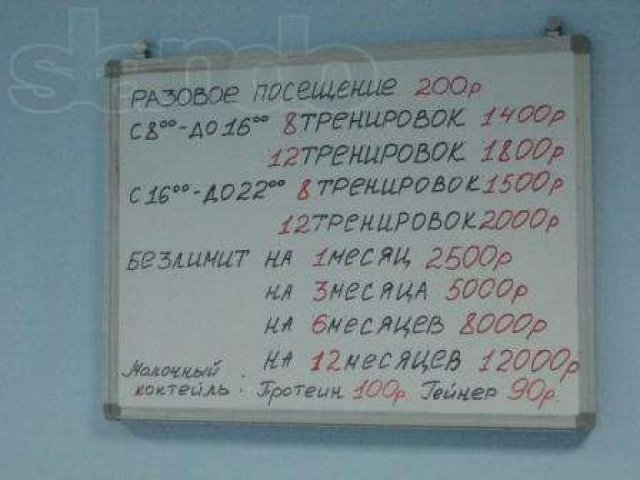 slando
РАЗОВОЕ ПОСЕЩЕНИЕ 200р
С 8⁰⁰-ДО 16⁰⁰ 8 ТРЕНИРОВОК 1400р
12 ТРЕНИРОВОК 1800р
С 16⁰⁰-ДО 22⁰⁰ 8 ТРЕНИРОВОК 1500р
12 ТРЕНИРОВОК 2000р
БЕЗЛИМИТ НА 1 МЕСЯЦ 2500р
НА 3 МЕСЯЦА 5000р
НА 6 МЕСЯЦЕВ 8000р
НА 12 МЕСЯЦЕВ 12000р
Молочный
коктейль. Протеин 100р. Гейнер 90р.